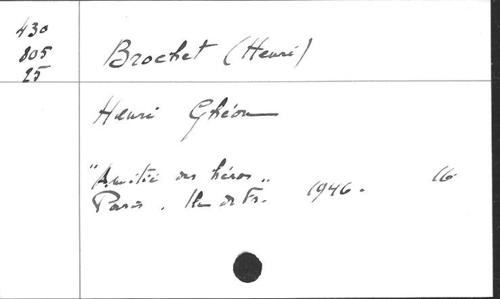 430
805
25
Brochet (Henri)
Henri Ghéon
"Amitié des héros"
Paris. 1946. 16